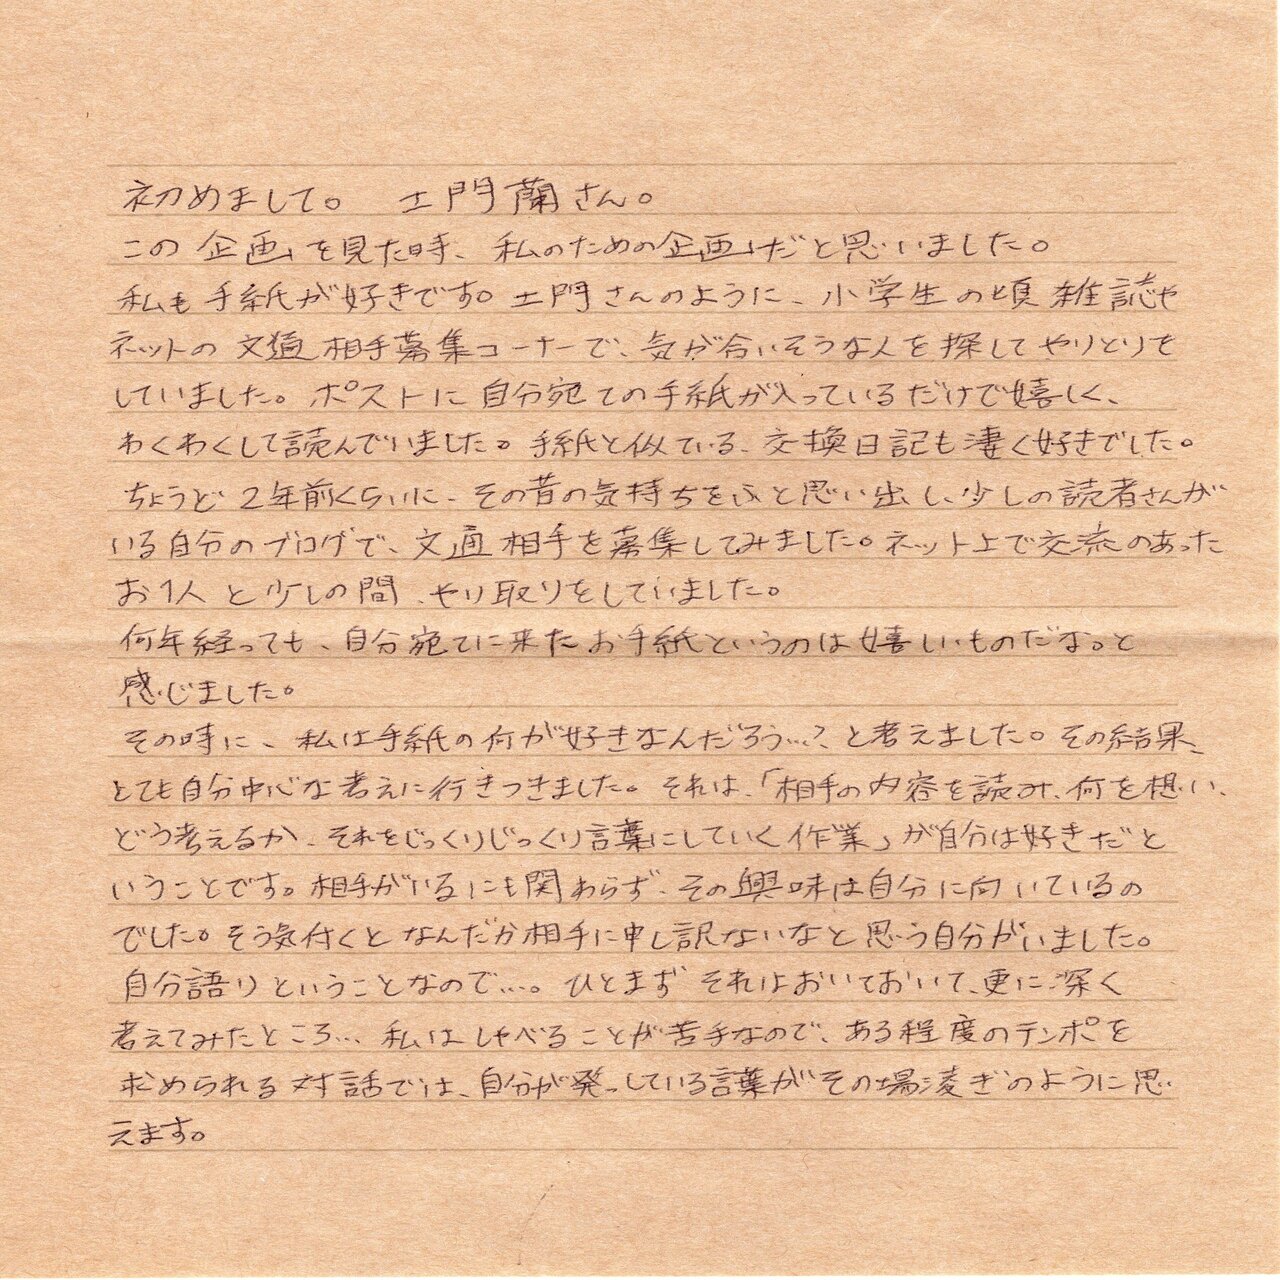 初めまして。 土門蘭さん。
この企画を見た時、私のための企画だと思いました。
私も手紙が好きです。土門さんのように、小学生の頃雑誌や
ネットの文通相手募集コーナーで、気が合いそうな人を探してやりとりを
していました。ポストに自分宛ての手紙が入っているだけで嬉しく、
わくわくして読んでいました。手紙と似ている、交換日記も凄く好きでした。
ちょうど2年前くらいに、その昔の気持ちをふと思い出し、少しの読者さんが
いる自分のブログで、文通相手を募集してみました。ネット上で交流のあった
お1人と少しの間、やり取りをしていました。
何年経っても、自分宛てに来たお手紙というのは嬉しいものだな。と
感じました。
その時に、私は手紙の何が好きなんだろう…?と考えました。その結果、
とても自分中心な考えに行きつきました。それは、「相手の内容を読み、何を想い、
どう考えるか、それをじっくりじっくり言葉にしていく作業」が自分は好きだと
いうことです。相手がいるにも関わらず、その興味は自分に向いているの
でした。そう気付くとなんだか相手に申し訳ないなと思う自分がいました。
自分語りということなので…。ひとまずそれはおいておいて、更に深く
考えてみたところ…私はしゃべることが苦手なので、ある程度のテンポを
求められる対話では、自分が発っしている言葉がその場凌ぎのように思
えます。